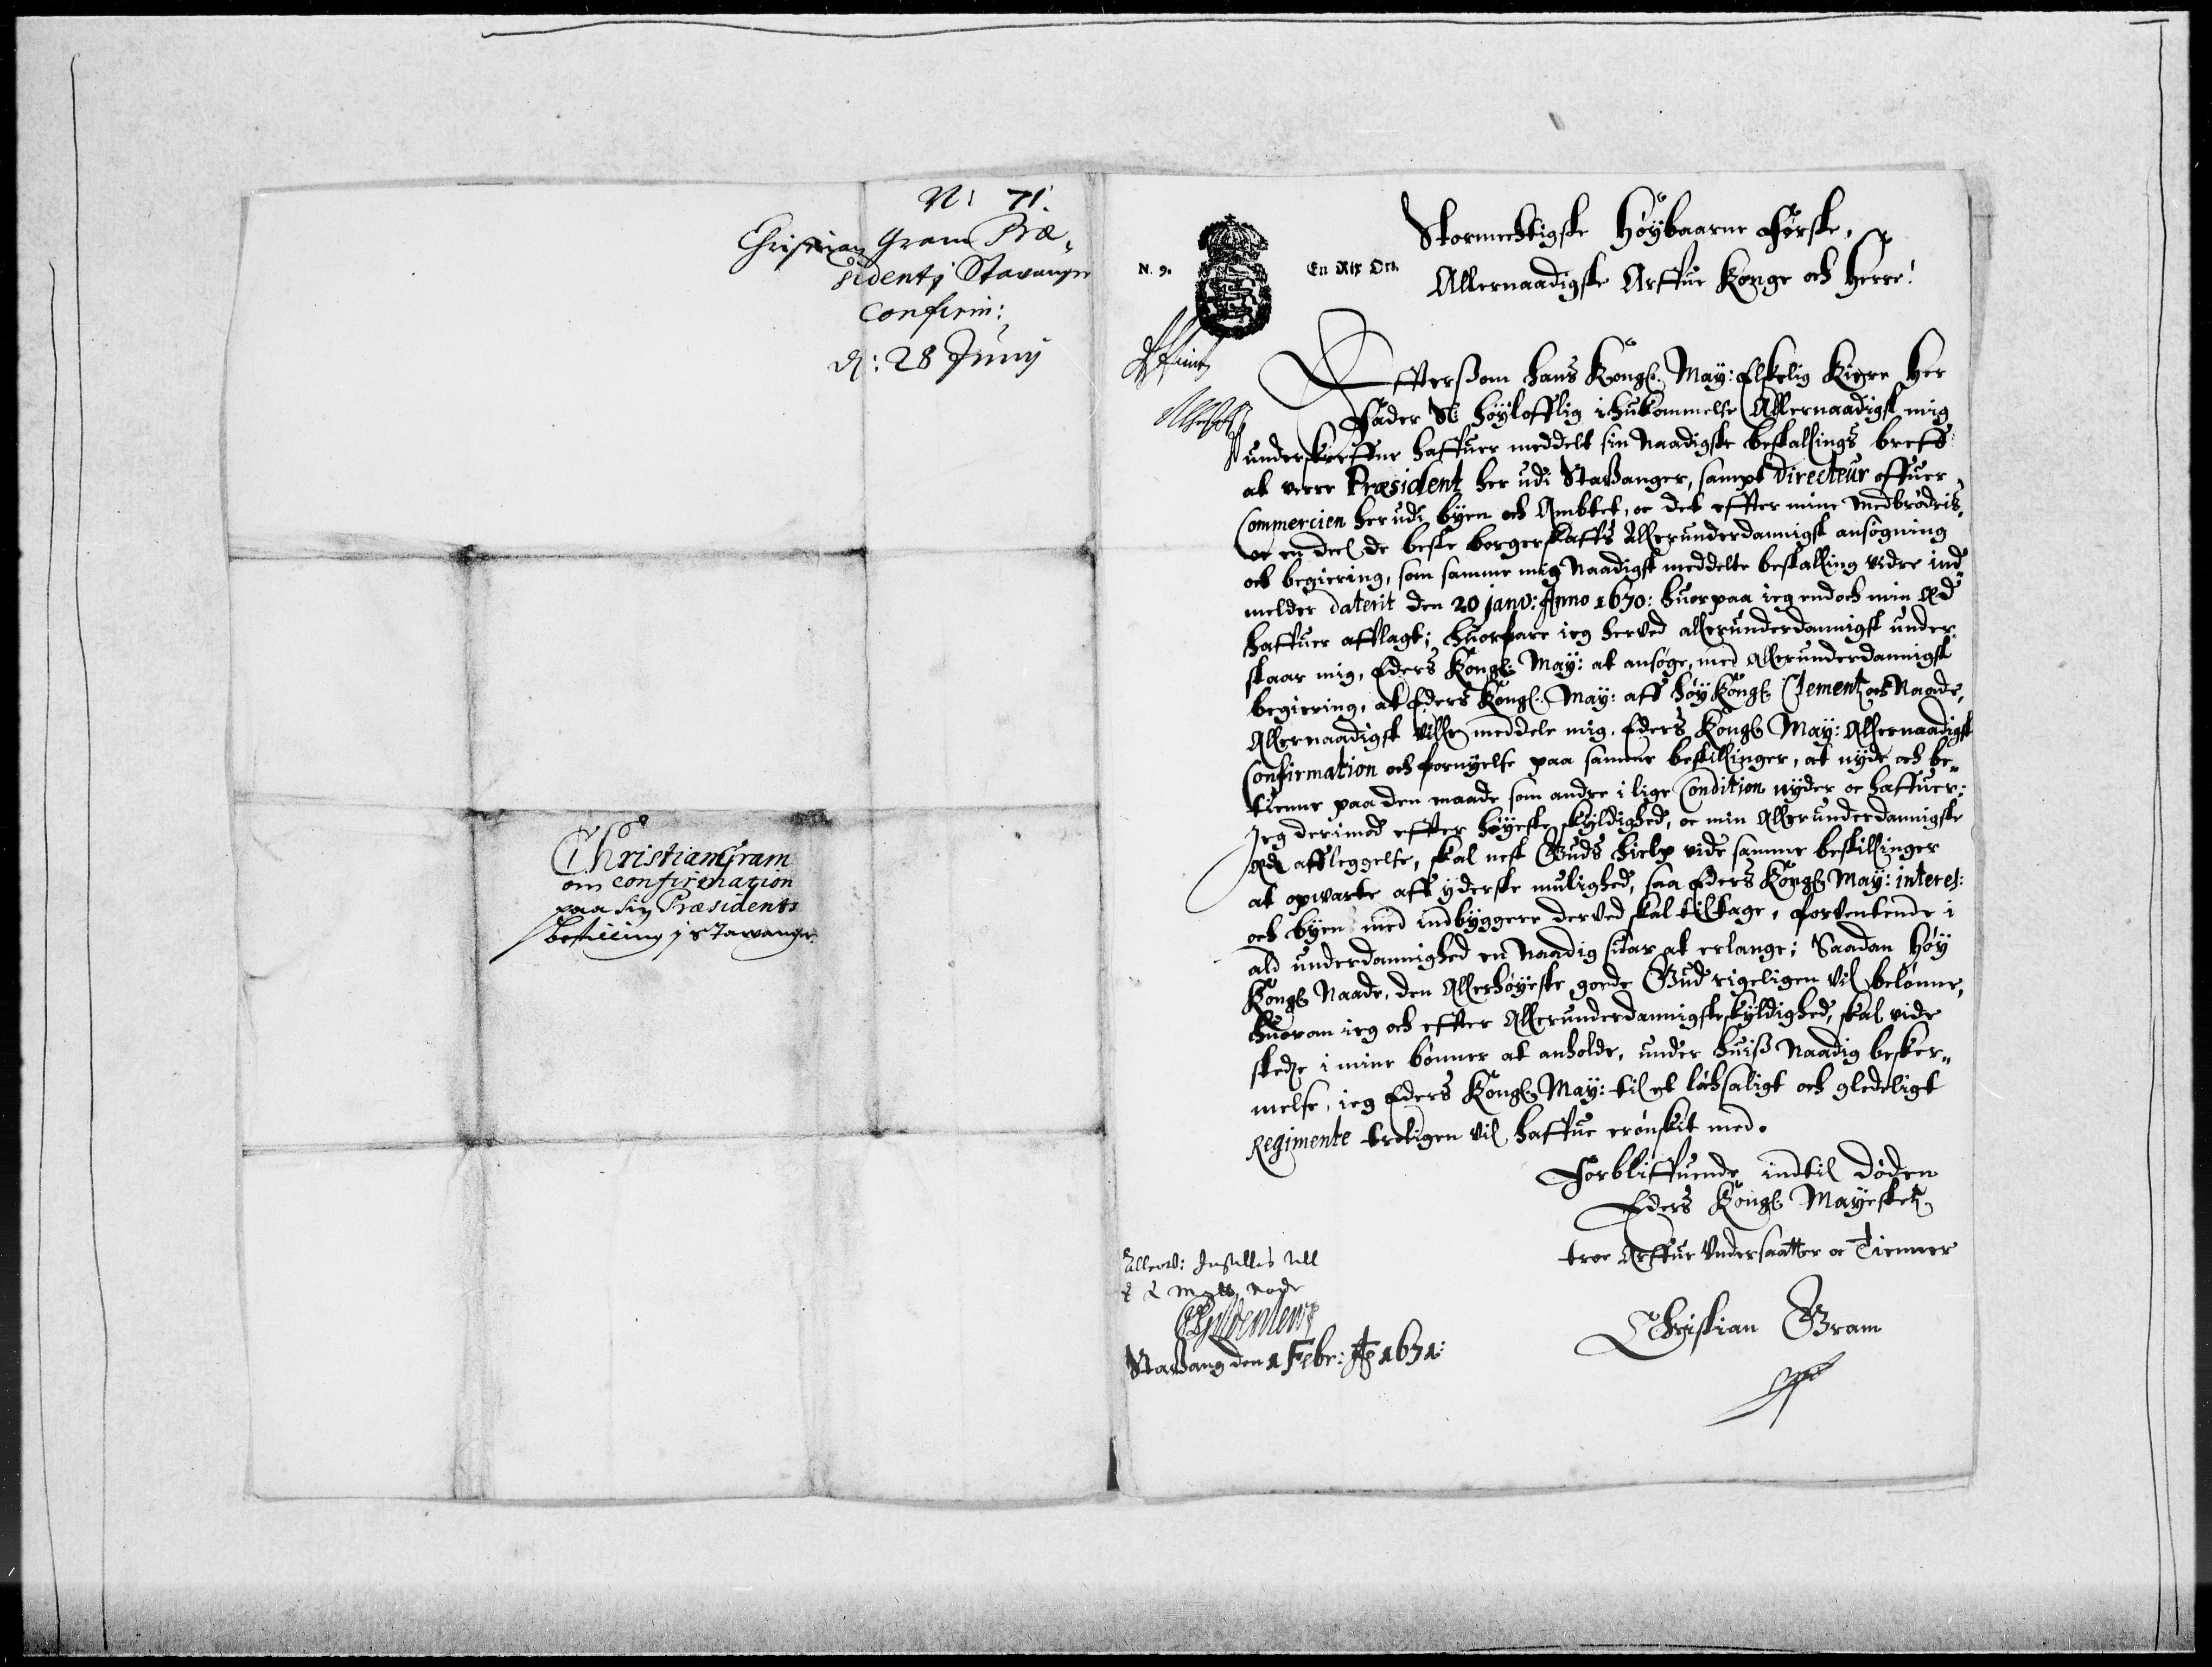 N: 71.
Christian Gram Præ,
sident i Stavanger
Confirm:
d: 28 Junij
Christian Gram
om confirmation
paa sin Præsidents
bestilling i Stavanger.
N. 9.
En Rix Ort.
Stormechtigste Høybaarne Første,
Allernaadigste Arffue Konge och Herre!
Effterssom hans Kongl: May: Elskelig Kiere Her
Fader S: høylofflig ihukommelse Allernaadigst mig
underskreffne haffuer meddelt sin Naadigste bestallings breff
at verre Præsident her udi Stavanger, sampt Directeur offuer
Commercien her udi byen och Ambtet, oc det effter mine medbrødris,
oc en deel de beste borgerskaffs Allerunderdannigst ansøgning
och begiering, som samme mig Naadigst meddelte bestalling videre ind,,
melder daterit den 20 janv: Anno 1670: huorpaa ieg endoch min Eed
haffuer afflagt; huorfore ieg herved allerunderdannigst under,,
staar mig, Eders Kongl: May: at ansøge, med Allerunderdannigst
begiering, at Eders Kongl: May: aff høy Kongl: Clement och Naade,
Allernaadigst ville meddele mig, Eders Kongl: May: Allernaadigst
Confirmation och fornyelse paa samme bestillinger, at nyde och be,,
tienne paa den maade som andre i lige Condition nyder oc haffuer;
Jeg derimod effter høyeste skyldighed, oc min Allerunderdannigste
Eds affleggelse, skal nest Guds hielp vide samme bestillinger
at opwarte aff yderste mulighed, saa Eders Kongl: May: interes:
och byens med indbyggere derved skal tiltage, forventende i
ald underdannighed en Naadig suar at erlange; Saadan høy
Kongl: Naade, den Allerhøyeste goede Gud rigeligen vil belønne,
huorom ieg och effter Allerunderdannigste skyldighed, skal vide
stedze i mine bønner at anholde, under huiss Naadig besker,,
melse, ieg Eders Kongl: May: til et løchsaligt och gledeligt
Regimente troligen vil haffue erønskit med.
Forbliffuende indtil døden
Eders Kongl: Mayestetz
troe Arffue Undersaatter oc Tienner
Christian Gram
Allerv: Instilles till
Gyldenlewe
Stavang den 1 Febr: Ao 1671: